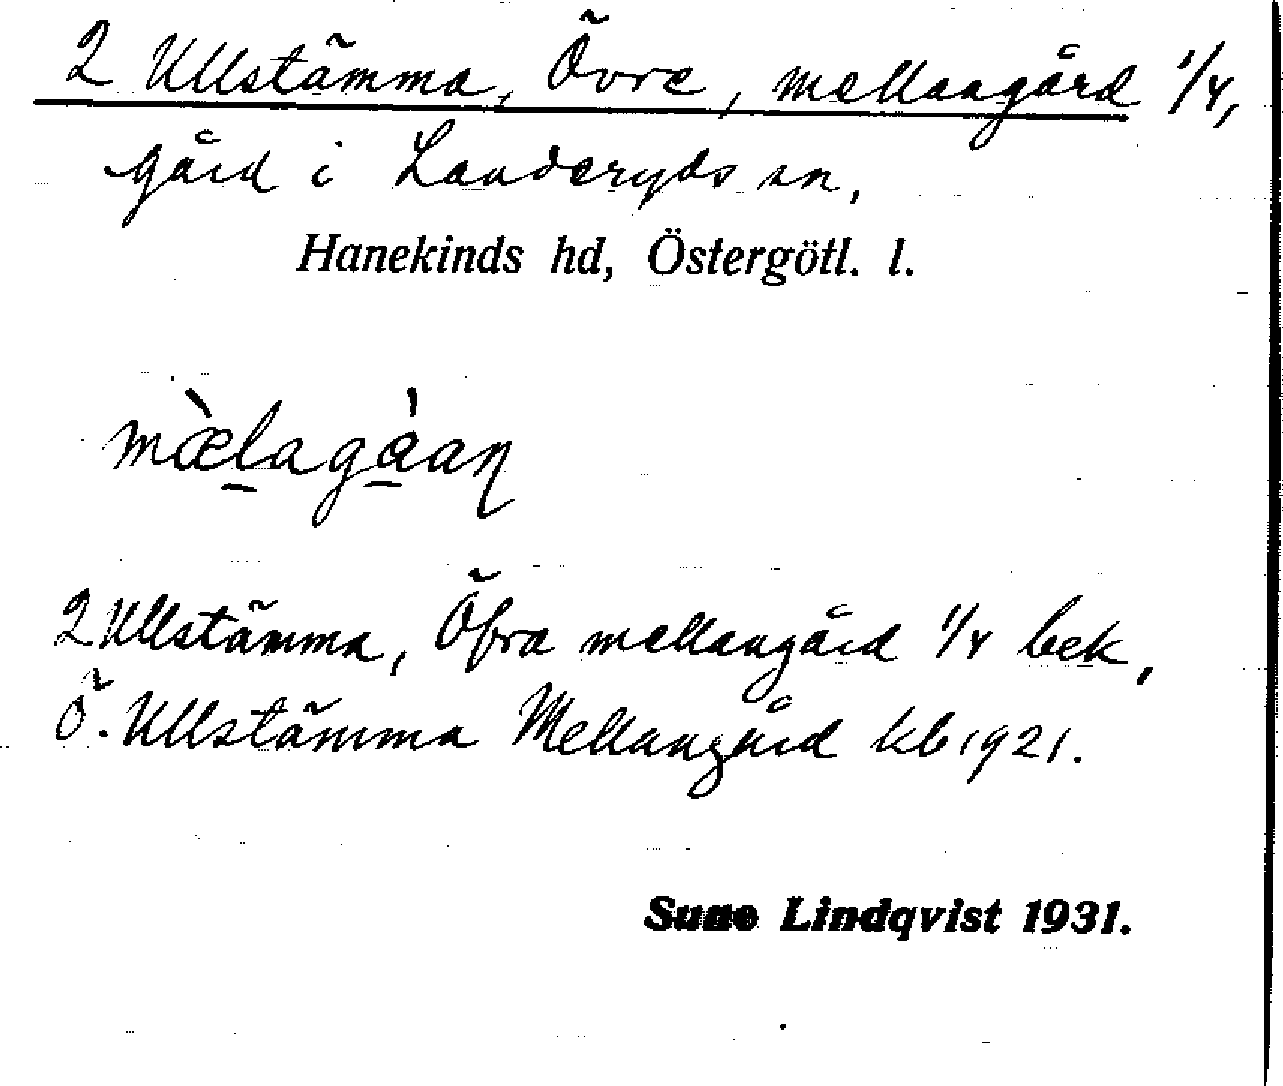 2 Ullstämma, Övre, mellangård 1/4,
gård i Landeryds sn,
Hanekinds hd, Östergötl. l.
mæ̀lagàaṇ
2 Ullstämma, Öfra mellangård 1/4 bek,
Ö. Ullstämma Mellangård kb 1921.
Sune Lindqvist 1931.